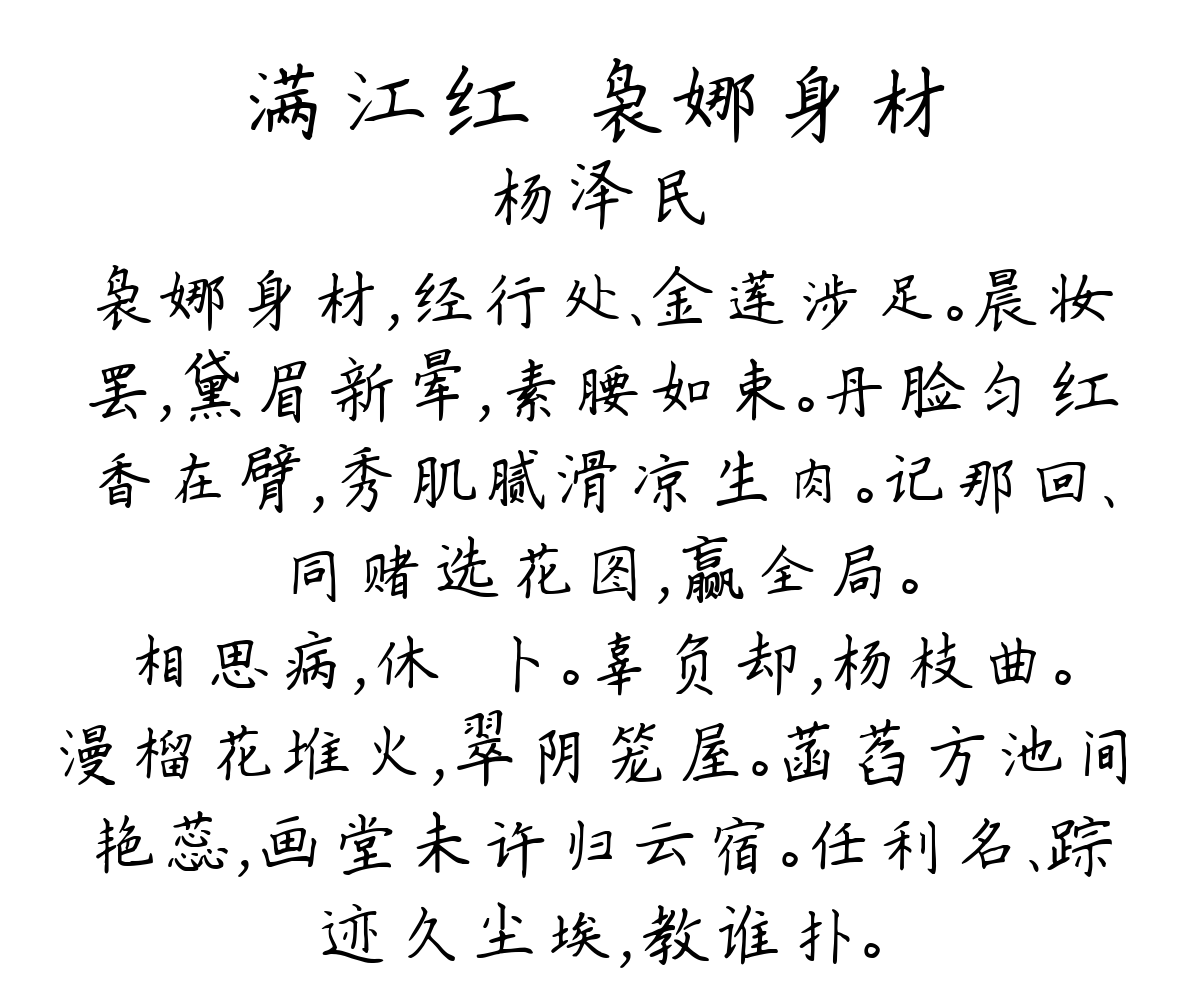 满江红 袅娜身材
杨泽民
袅娜身材,经行处、金莲涉足。晨妆
罢,黛眉新晕,素腰如束。丹脸匀红
香在臂,秀肌腻滑凉生肉。记那回、
同赌选花图,赢全局。
相思病,休 卜。辜负却,杨枝曲。
漫榴花堆火,翠阴笼屋。菡萏方池间
艳蕊,画堂未许归云宿。任利名、踪
迹久尘埃,教谁扑。